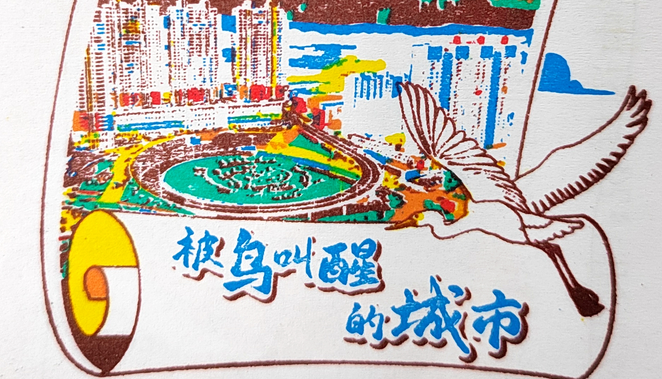 被鸟叫醒
的城市